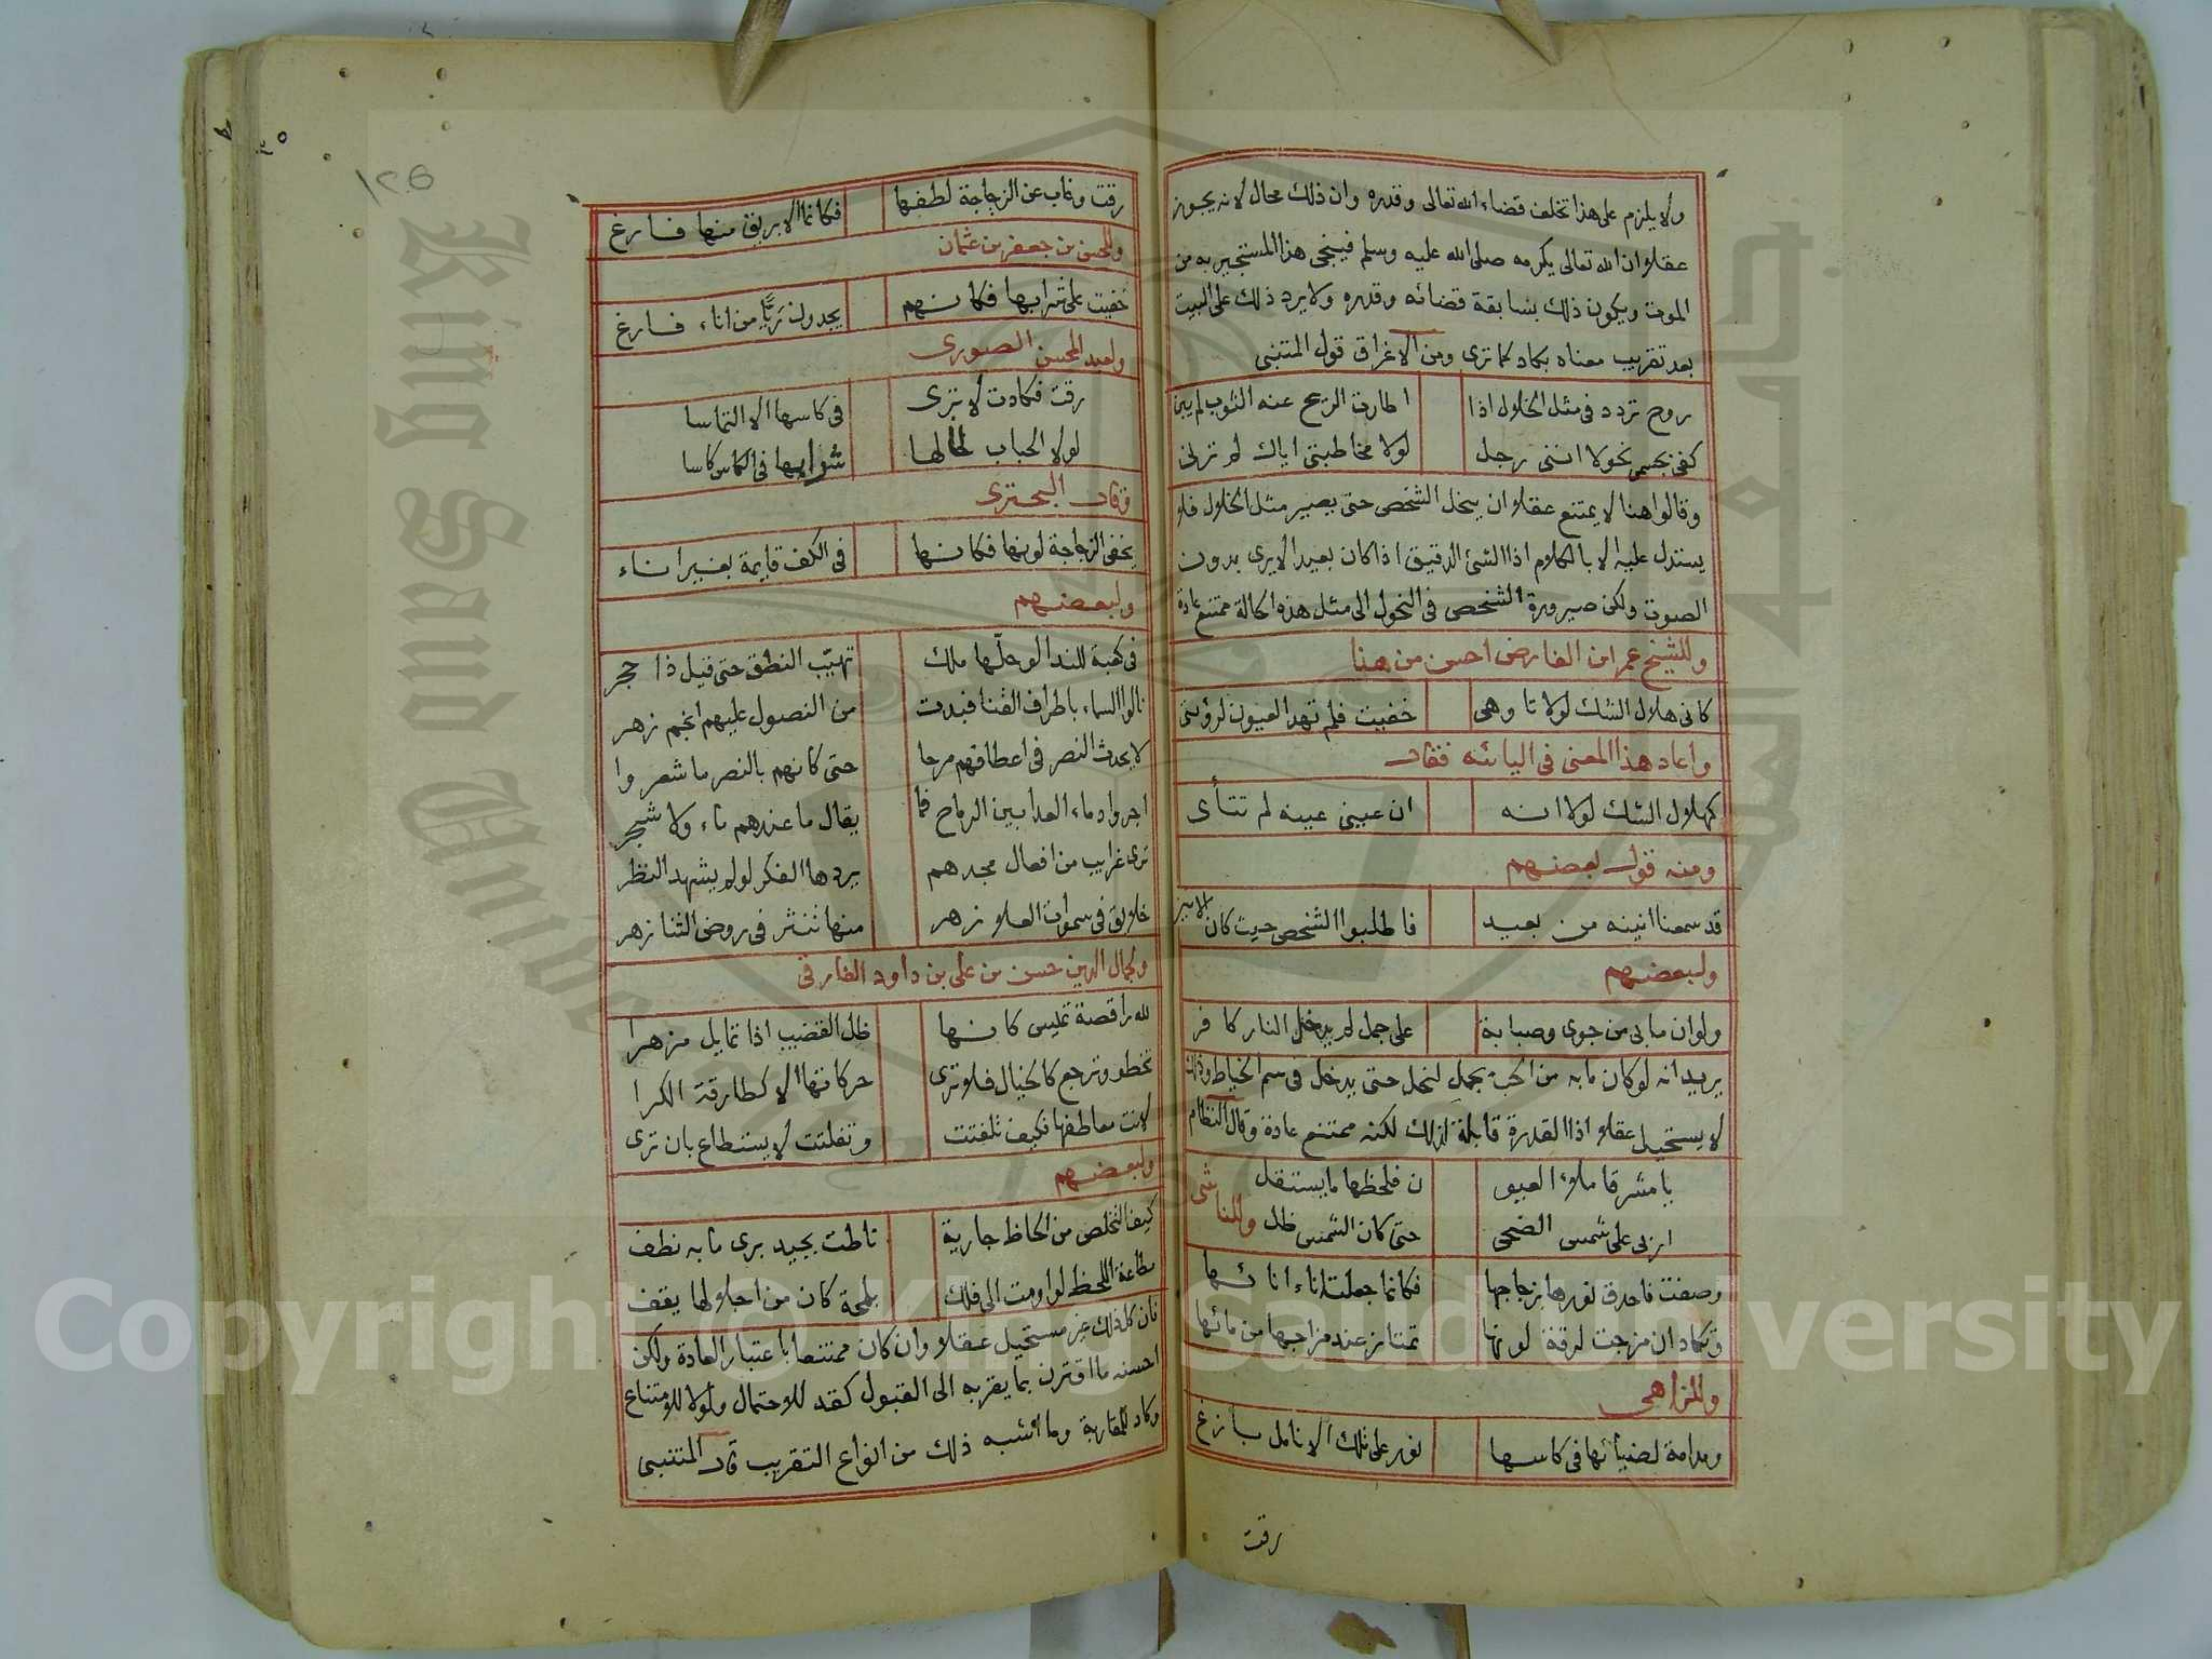 ولا يلزم على هذا تخلف قضاء الله تعالى وقدره وان ذلك محال لانه يجوز
عقلا ان الله تعالى يكرمه صلى الله عليه وسلم فينجى هذا المستجير به من
الموت ويكون ذلك بسابقة قضائه وقدره ولا يرد ذلك على البيت
بعد تقريب معناه بكاد كما ترى ومن الاغراق قول المتنبى
روح تردد فى مثل الخلال اذا اطارت الريح عنه الثوب لم يبن
كفى بجسمى نحولا اننى رجل لولا مخاطبتى اياك لم ترنى
وقالوا هنا لا يمتنع عقلا ان ينحل الشخص حتى يصير مثل الخلال فلا
يستدل عليه الا بالكلام اذ الشئ الدقيق اذا كان بعيدا لا يرى بدون
الصوت ولكن صيرورة الشخص فى النحول الى مثل هذه الحالة ممتنع عادة
وللشيخ عمر ابن الفارض احسن من هنا
كانى هلال الشك لولا تاوهى خفيت فلم تهد العيون لرؤيتى
واعاد هذا المعنى فى اليائه فقال
كهلال الشك لولا انه ان عينى عينه لم تتأى
ومنه قول بعضهم
قد سمعنا انينه من بعيد فاطلبوا الشخص حيث كان الانين
ولبعضهم
ولو ان ما بى من جوى وصبابة على جمل لم يدخل النار كافر
يريد انه لو كان ما به من الحب بجمل لنحل حتى يدخل فى سم الخياط وذلك
لا يستحيل عقلا اذ القدرة قابلة لذلك لكنه ممتنع عادة وقال النظام
يا مشرقا ملأ العيو ن فلحظها ما يستقل
اربى على شمس الضحى حتى كان الشمس ظل وللناشى
وصفت فاحدق نورها بزجاجها فكانما جعلت اناء انائها
وتكاد ان مزجت لرقة لونها تمتاز عند مزاجها من مائها
وللزاهى
ومدامة لضيائها فى كاسها نور على تلك الانامل بازغ
رقت
رقت وغاب عن الزجاجة لطفها فكانما الابريق منها فارغ
وللحسن بن جعفر بن عثمان
خفيت على شرابها فكانهم يجدون ريّا من اناء فارغ
ولعبد المحسن الصورى
رقت فكادت لا ترى فى كاسها الا التماسا
لولا الحباب لخالها شرابها فى الكاس كاسا
وقال البحترى
يخفى الزجاجة لونها فكانها فى الكف قايمة بغير اناء
ولبعضهم
فى كعبة للندا لو حلها ملك تهيّب النطق حتى قيل ذا حجر
نالوا السماء باطراف القنا فبدت من النصول عليهم انجم زهر
لا يحدث النصر فى اعطافهم مرحا حتى كانهم بالنصر ما شعروا
اجروا دماء العدا بين الرماح فما يقال ما عندهم ماء ولا شجر
ترى غرايب من افعال مجدهم يردها الفكر لو لم يشهد النظر
خلايق فى سموات العلا زهر منها تنثر فى روض الثنا زهر
ولجمال الدين حسن بن على بن داود الفارقى
لله راقصة تميس كانها ظل القضيب اذا تمايل مزهرا
تخطو وترجع كالخيال فلا ترى حركاتها الا كطارقة الكرا
لانت معاطفها فكيف تلفتت وتفلتت لا يستطاع بان ترى
ولبعضهم
كيف التخلص من الحاظ جارية ناطت بجيد برى ما به نطف
مطاعة اللحظ لو اومت الى فلك بلمحة كان من اجلالها يقف
فان كل ذلك غير مستحيل عقلا وان كان ممتنعا باعتبار العادة ولكن
احسنه ما اقترن بما يقربه الى القبول كقد للاحتمال ولولا للامتناع
وكاد للمقاربة وما اشبه ذلك من انواع التقريب قال المتنبى